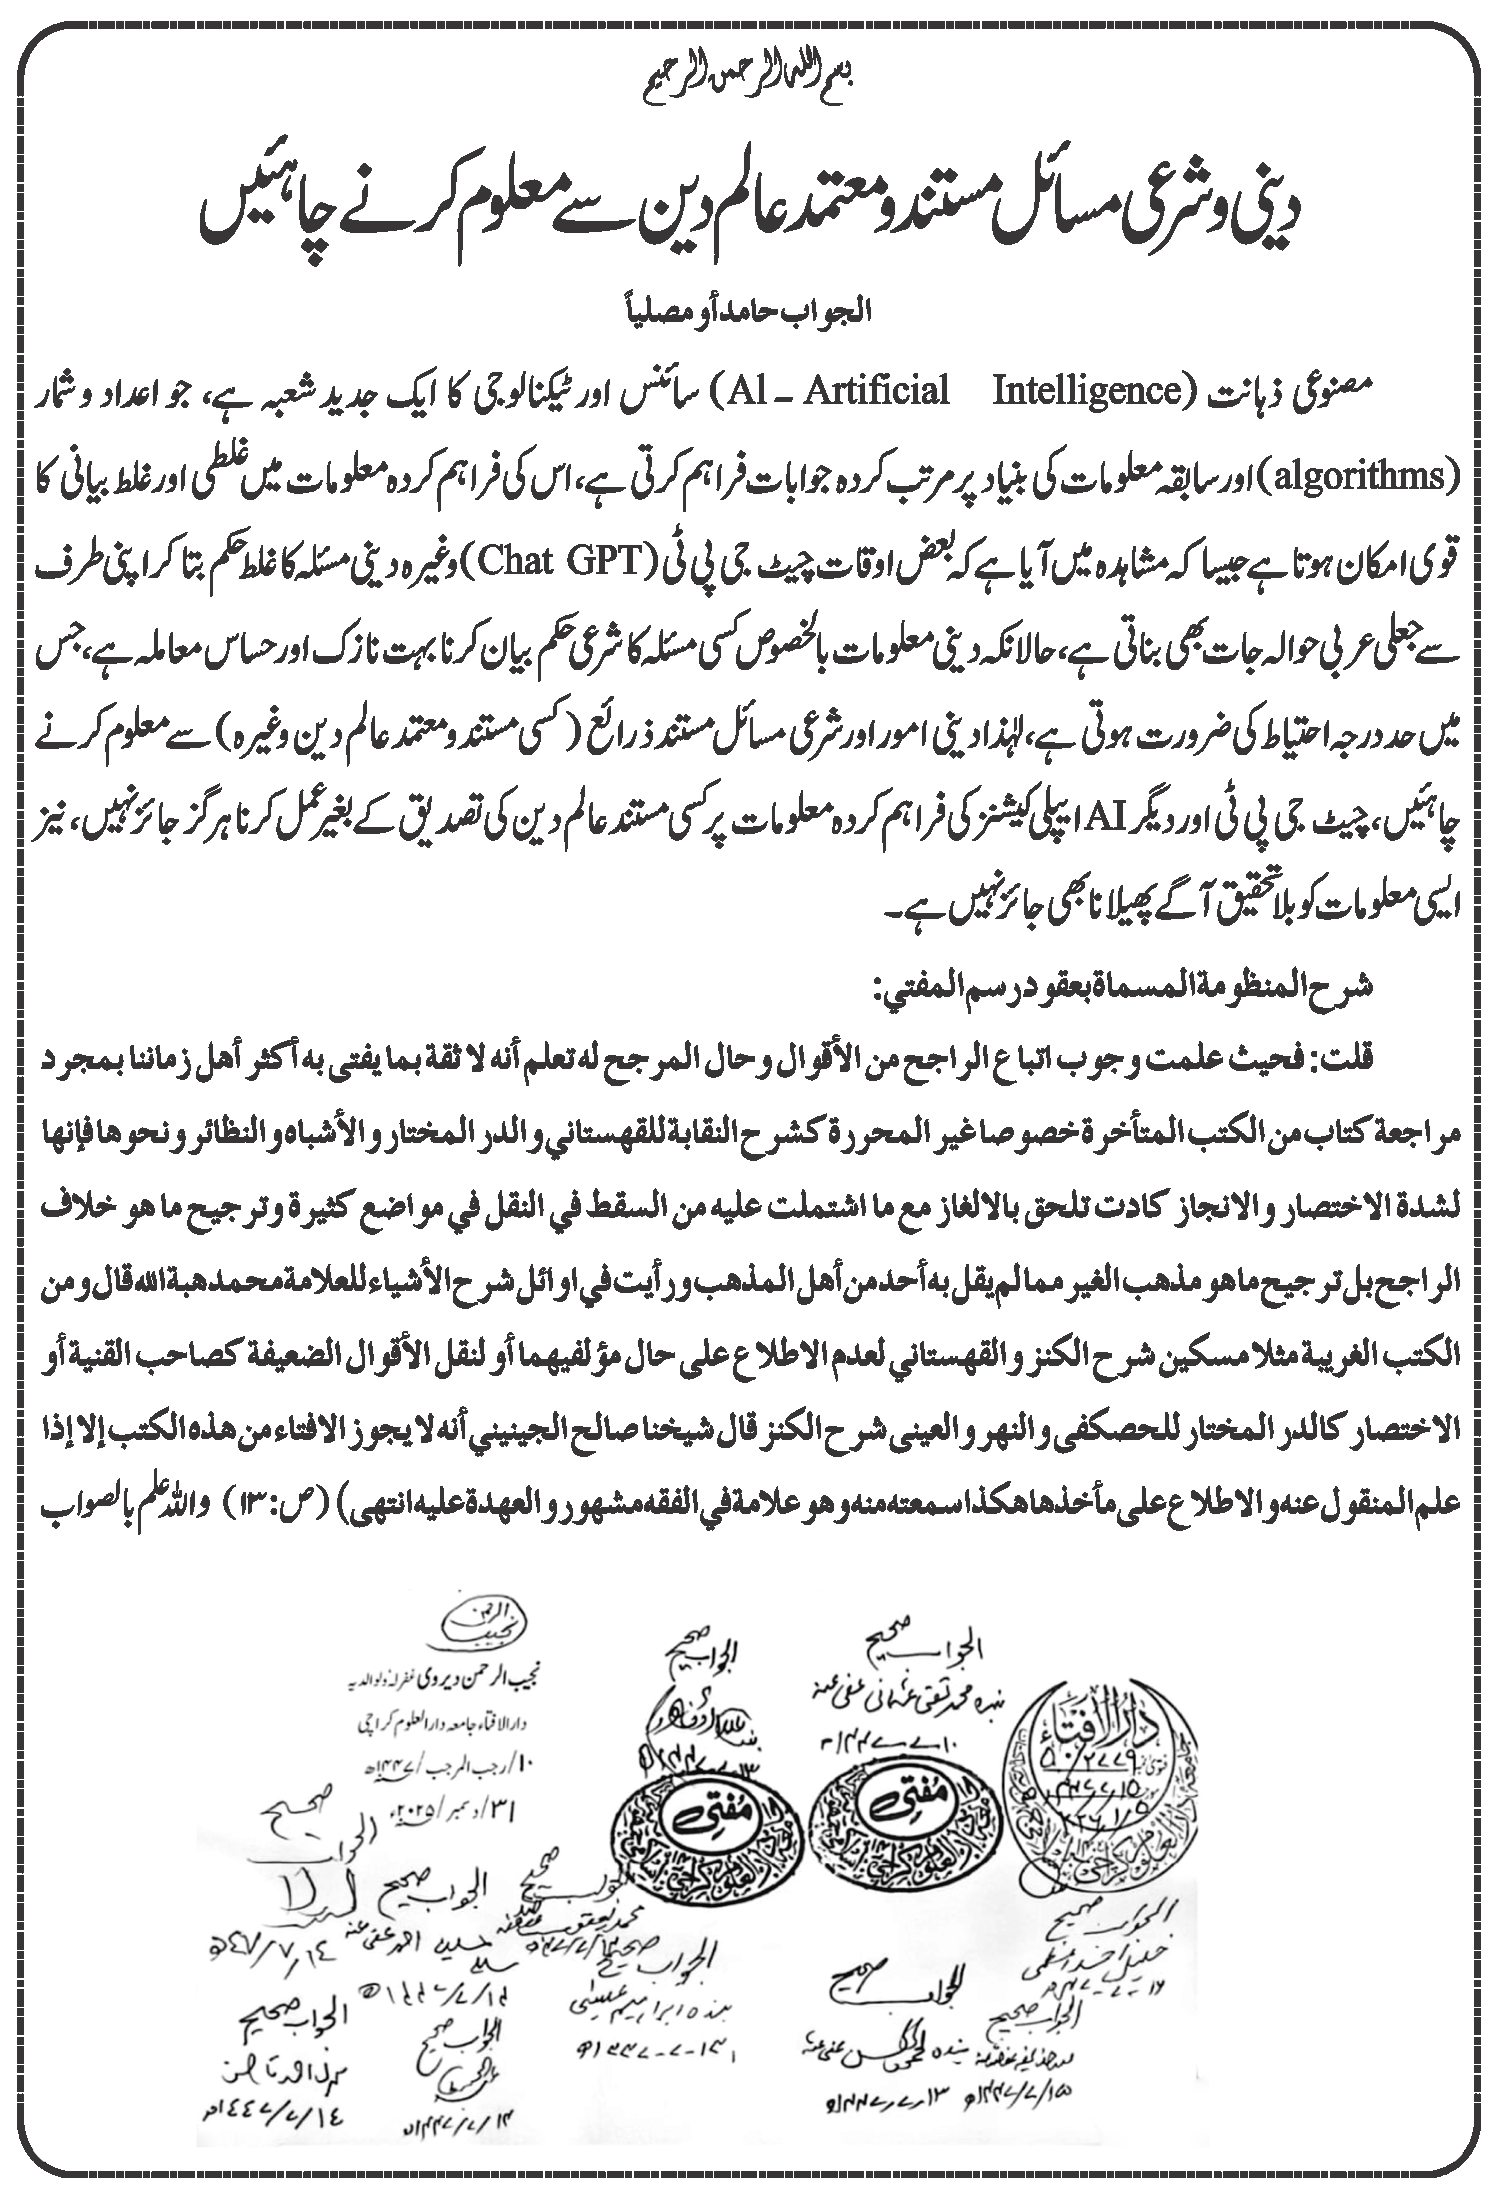 بسم الله الرحمن الرحیم
دینی و شرعی مسائل مستند و معتمد عالم دین سے معلوم کرنے چاہئیں
الجواب حامداً و مصلیاً
مصنوعی ذہانت (Al – Artificial Intelligence) سائنس اور ٹیکنالوجی کا ایک جدید شعبہ ہے، جو اعداد و شمار
(algorithms) اور سابقہ معلومات کی بنیاد پر مرتب کردہ جوابات فراہم کرتی ہے، اس کی فراہم کردہ معلومات میں غلطی اور غلط بیانی کا
قوی امکان ہوتا ہے جیسا کہ مشاہدہ میں آیا ہے کہ بعض اوقات چیٹ جی پی ٹی (Chat GPT) وغیرہ دینی مسئلہ کا غلط حکم بتا کر اپنی طرف
سے جعلی عربی حوالہ جات بھی بناتی ہے، حالانکہ دینی معلومات بالخصوص کسی مسئلہ کا شرعی حکم بیان کرنا بہت نازک اور حساس معاملہ ہے، جس
میں حد درجہ احتیاط کی ضرورت ہوتی ہے، لہٰذا دینی امور اور شرعی مسائل مستند ذرائع (کسی مستند و معتمد عالم دین وغیرہ) سے معلوم کرنے
چاہئیں، چیٹ جی پی ٹی اور دیگر AI ایپلی کیشنز کی فراہم کردہ معلومات پر کسی مستند عالم دین کی تصدیق کے بغیر عمل کرنا ہرگز جائز نہیں، نیز
ایسی معلومات کو بلا تحقیق آگے پھیلانا بھی جائز نہیں ہے۔
شرح المنظومة المسماة بعقود رسم المفتي:
قلت: فحيث علمت وجوب اتباع الراجح من الأقوال وحال المرجح له تعلم أنه لا ثقة بما يفتى به أكثر أهل زماننا بمجرد
مراجعة كتاب من الكتب المتأخرة خصوصا غير المحررة كشرح النقابة للقهستاني والدر المختار والأشباه والنظائر ونحوها فإنها
لشدة الاختصار والانجاز كادت تلحق بالالغاز مع ما اشتملت عليه من السقط في النقل في مواضع كثيرة وترجيح ما هو خلاف
الراجح بل ترجيح ما هو مذهب الغير مما لم يقل به أحد من أهل المذهب ورأيت في اوائل شرح الأشياء للعلامة محمد هبة الله قال ومن
الكتب الغريبة مثلا مسكين شرح الكنز والقهستاني لعدم الاطلاع على حال مؤلفيهما أو لنقل الأقوال الضعيفة كصاحب القنية أو
الاختصار كالدر المختار للحصكفى والنهر والعينى شرح الكنز قال شيخنا صالح الجينيني أنه لا يجوز الافتاء من هذه الكتب إلا إذا
علم المنقول عنه والاطلاع على مأخذها هكذا سمعته منه وهو علامة في الفقه مشهور والعهدة عليه انتهى) (ص:۱۳) واللہ علم بالصواب
نجیب الرحمن
نجیب الرحمن دیروی غفر لہ ولوالدیہ
دارالافتاء جامعہ دارالعلوم کراچی
۱۰/رجب المرجب/۱۴۴۷ھ
۳۱/دسمبر/۲۰۲۵ء
الجواب صحیح
الجواب صحیح
بندہ محمد تقی عثمانی عفی عنہ
۱۰-۷-۱۴۴۷ھ
دارالافتاء
مفتی
مفتی
الجواب صحیح
۱۴/۷/۴۷ھ
الجواب صحیح
حسین احمد عفی عنہ
۱۴/۷/۱۴۴۷ھ
الجواب صحیح
محمد یعقوب عفا اللہ عنہ
الجواب صحیح
بندہ ابراہیم عیسیٰ
۱۳-۷-۱۴۴۷ھ
الجواب صحیح
۱۳-۷-۱۴۴۷ھ
الجواب صحیح
خلیل احمد اعظمی
الجواب صحیح
۱۵/۷/۱۴۴۷ھ
الجواب صحیح
۱۴/۷/۱۴۴۷ھ
الجواب صحیح
۱۴/۷/۱۴۴۷ھ